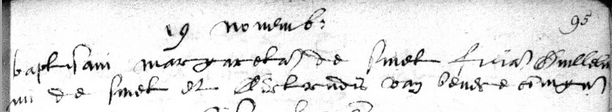 19 novemb: 95
baptisavi margaretam de smet filiam Guillel
mi de smet et Gertrudis van